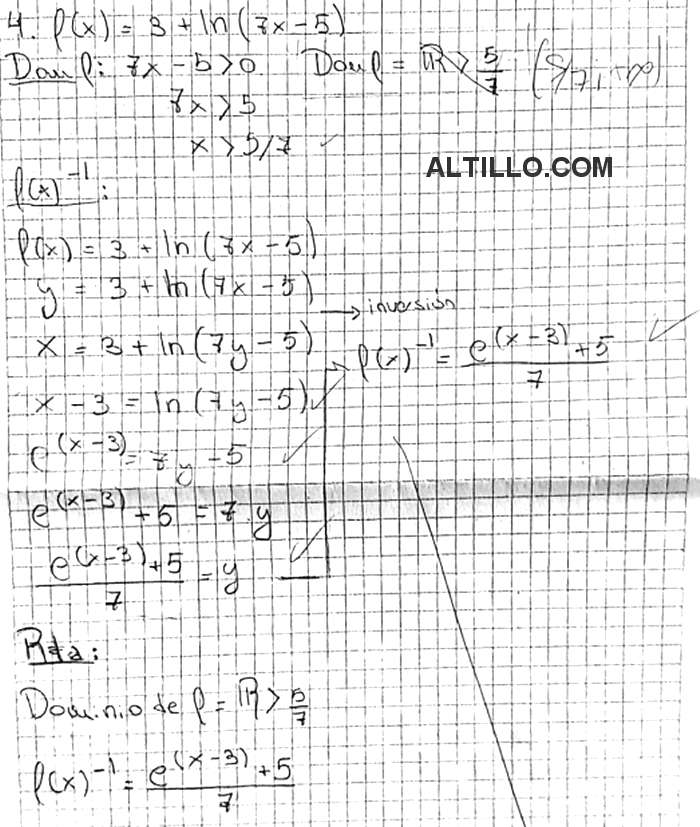 4. f(x) = 3 + ln(7x - 5)
Dom f: 7x - 5 > 0   Dom f = ℝ > 5/7   (5/7, +∞)
7x > 5
x > 5/7 ✓
ALTILLO.COM
f(x)⁻¹:
f(x) = 3 + ln(7x - 5)
y = 3 + ln(7x - 5)
→ inversión
x = 3 + ln(7y - 5)
f(x)⁻¹ = (e^(x-3) + 5)/7 ✓
x - 3 = ln(7y - 5) ✓
e^(x-3) = 7y - 5 ✓
e^(x-3) + 5 = 7.y
(e^(x-3) + 5)/7 = y ✓
Rta:
Dominio de f = ℝ > 5/7
f(x)⁻¹ = (e^(x-3) + 5)/7